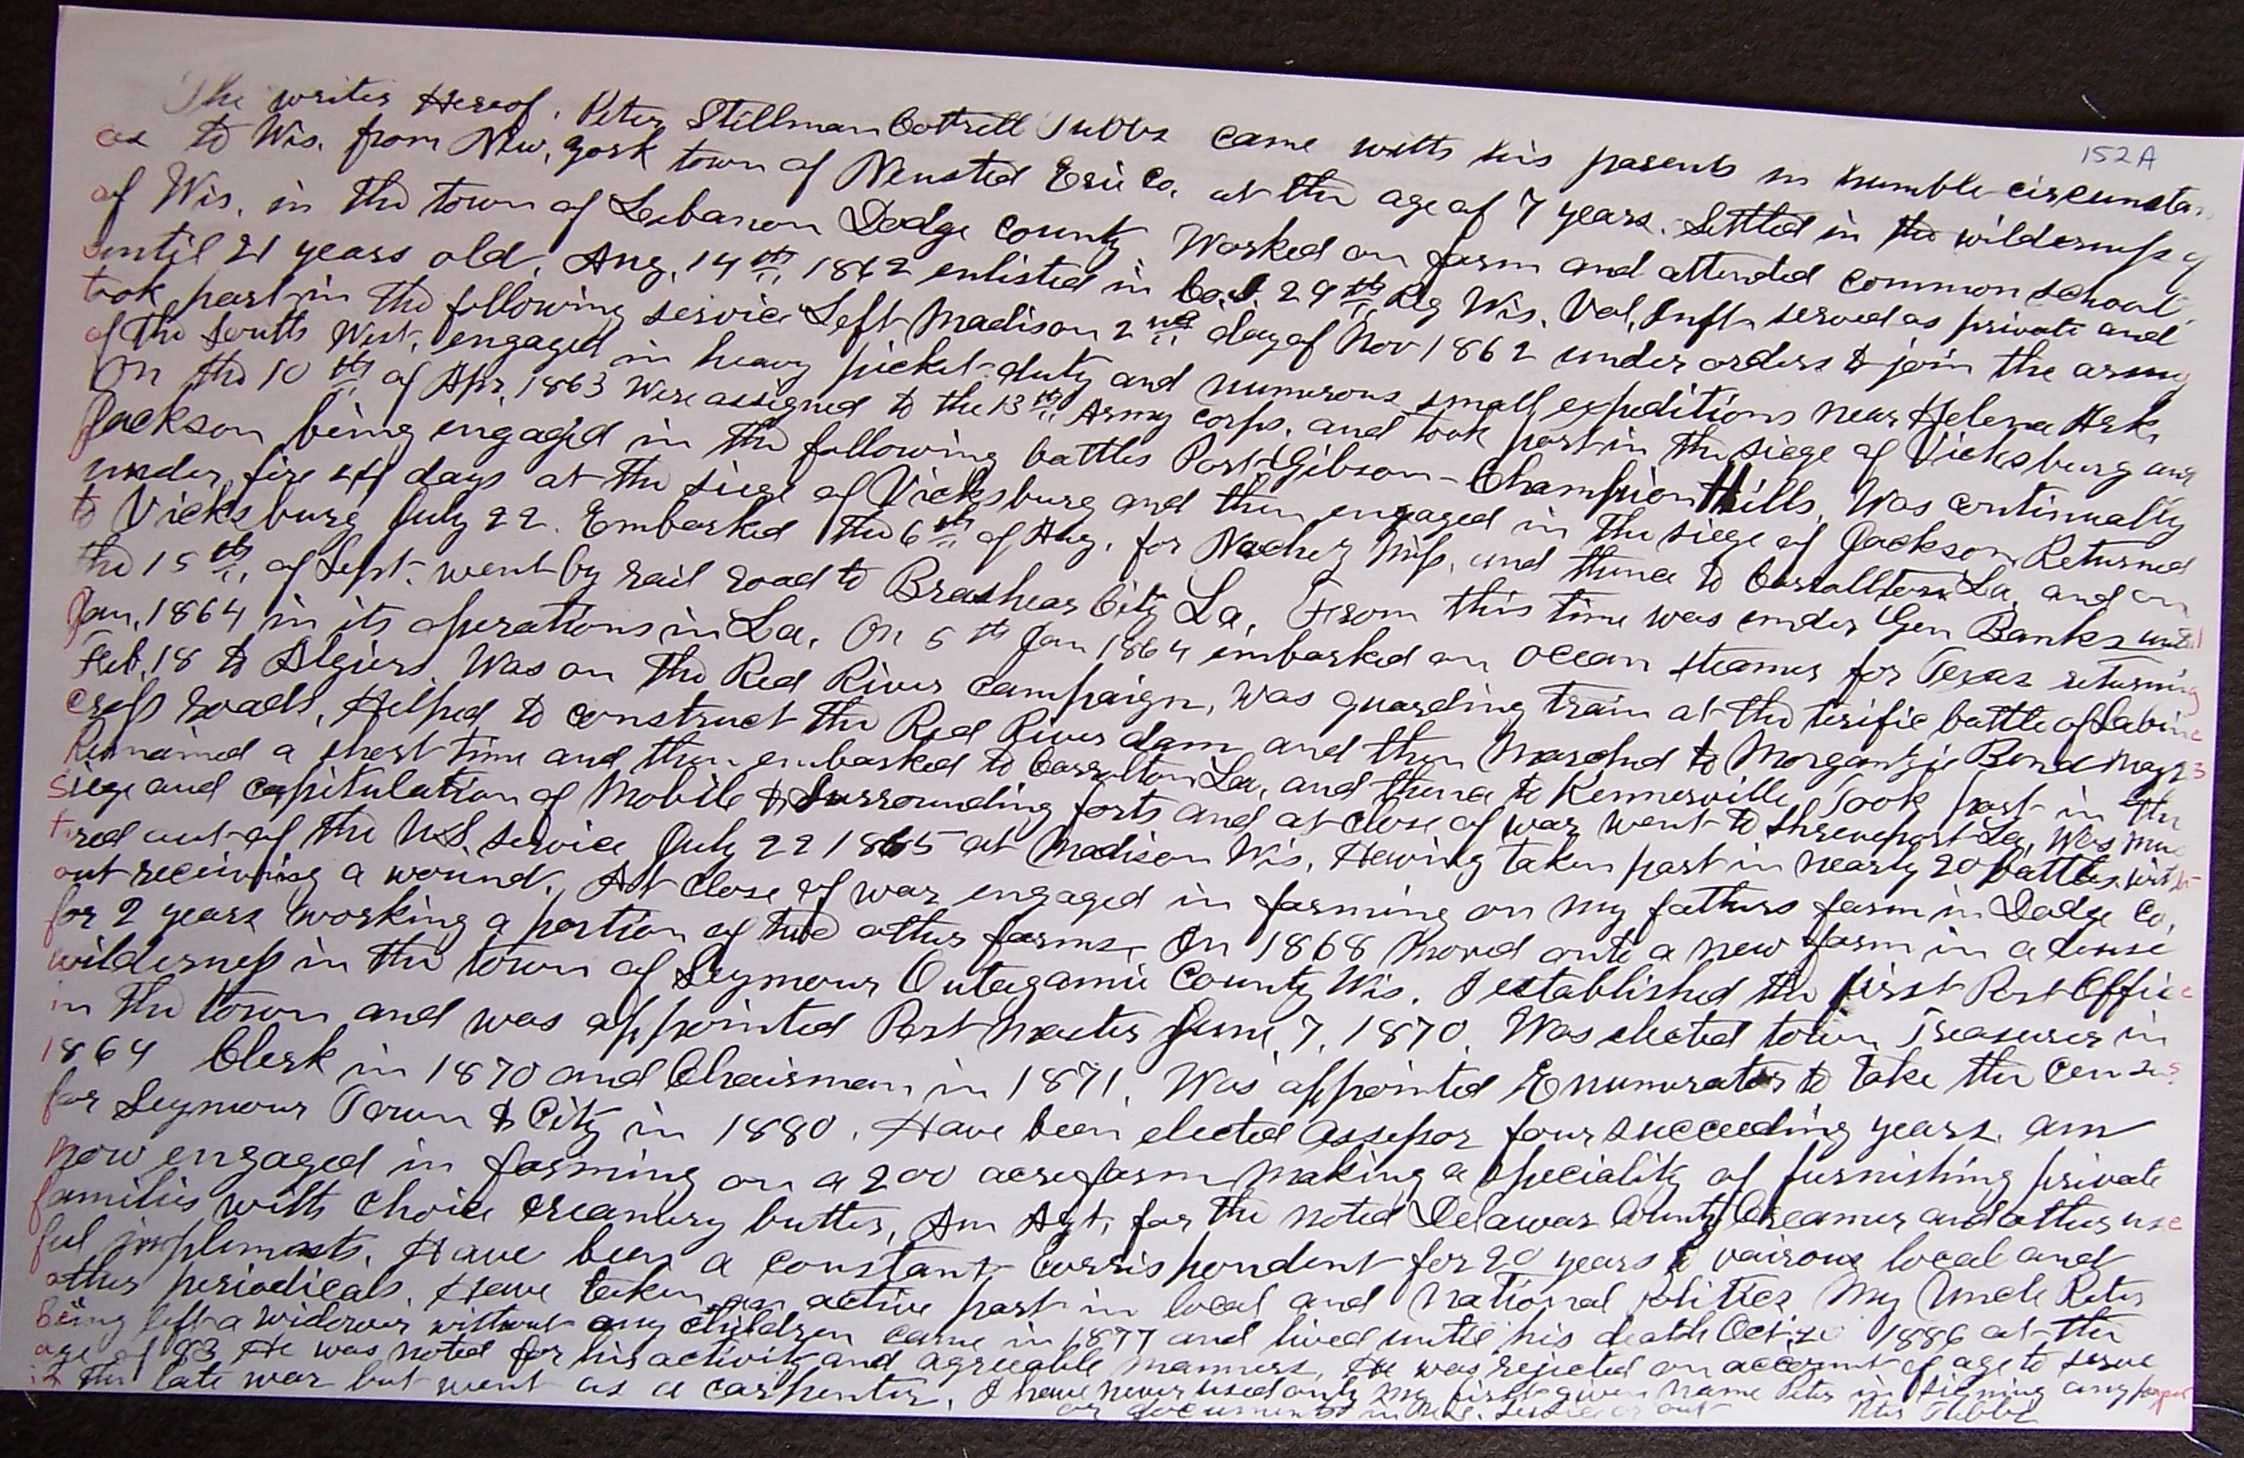 152A
The writer Hereof, Peter Stillman Cottrell Tubbs came with his parents in humble circumstan
ces to Wis. from New, York town of Neusted Erie Co. at the age of 7 years. Settled in the wilderness of
of Wis. in the town of Lebanon Dodge County Worked on farm and attended common school,
until 21 years old. Aug. 14th 1862 enlisted in Co. I. 29th Reg Wis. Vol, Inft served as private and
took part in the following service Left Madison 2nd day of Nov 1862 under orders to join the army
of the South West, engaged in heavy picket-duty and numerous small expeditions near Helena Ark,
On the 10th of Apr, 1863 Were assigned to the 13th Army Corps, and took part in the siege of Vicksburg and
Jackson being engaged in the following battles Port Gibson - Champion Hills, Was continually
under fire 44 days at the siege of Vicksburg and then engaged in the siege of Jackson Returned
to Vicksburg July 22. Embarked the 6th of Aug, for Nachez Miss, and thence to Carrollton La, and on
the 15th, of Sept. went by rail road to Brashear City La, From this time was under Gen Banks until
Jan, 1864 in its operations in La, On 5th Jan 1864 embarked on ocean steamer for Texas returning
Feb, 18 to Algiers Was on the Red River campaign, was guarding train at the terific battle of Sabine
cross roads, Helped to construct the Red River dam and then Marched to Morganzie Bend May 23
Remained a short time and then embarked to Carrolton La, and thence to Kennerville, Took part in the
siege and capitulation of Mobile & Surrounding forts and at close of war went to Shreveport La, Was mus
tred out of the U.S. service July 22 1865 at Madison Wis, Having taken part in nearly 20 battles, with
out receiving a wound. At close of war engaged in farming on my fathers farm in Dodge Co,
for 2 years working a portion of two other farms, In 1868 moved onto a new farm in a dense
wilderness in the town of Seymour Outagamie County Wis. I established the first Post Office
in the town and was appointed Post Master June, 7, 1870. Was elected town Treasurer in
1864 Clerk in 1870 and Chairman in 1871, Was appointed Enumerator to take the census
for Seymour Town & City in 1880, Have been elected Assessor four succeeding years, am
now engaged in farming on a 200 acre farm making a speciality of furnishing private
families with choice creamery butter, Am Agt, for the noted Delawar County Creamer and other use
ful implements, Have been a constant Corrispondent for 20 years to vairous local and
other periodicals. Have taken an active part in local and National politics My Uncle Peter
being left a widower without any children came in 1877 and lived until his death Oct, 20 1886 at the
age of 83 He was noted for his activity and agreeable manners, He was rejected on account of age to serve
in the late war but went as a carpenter, I have never used only my first given name Peter in signing any paper
or documents in the U.S. service or out Peter Tubbs